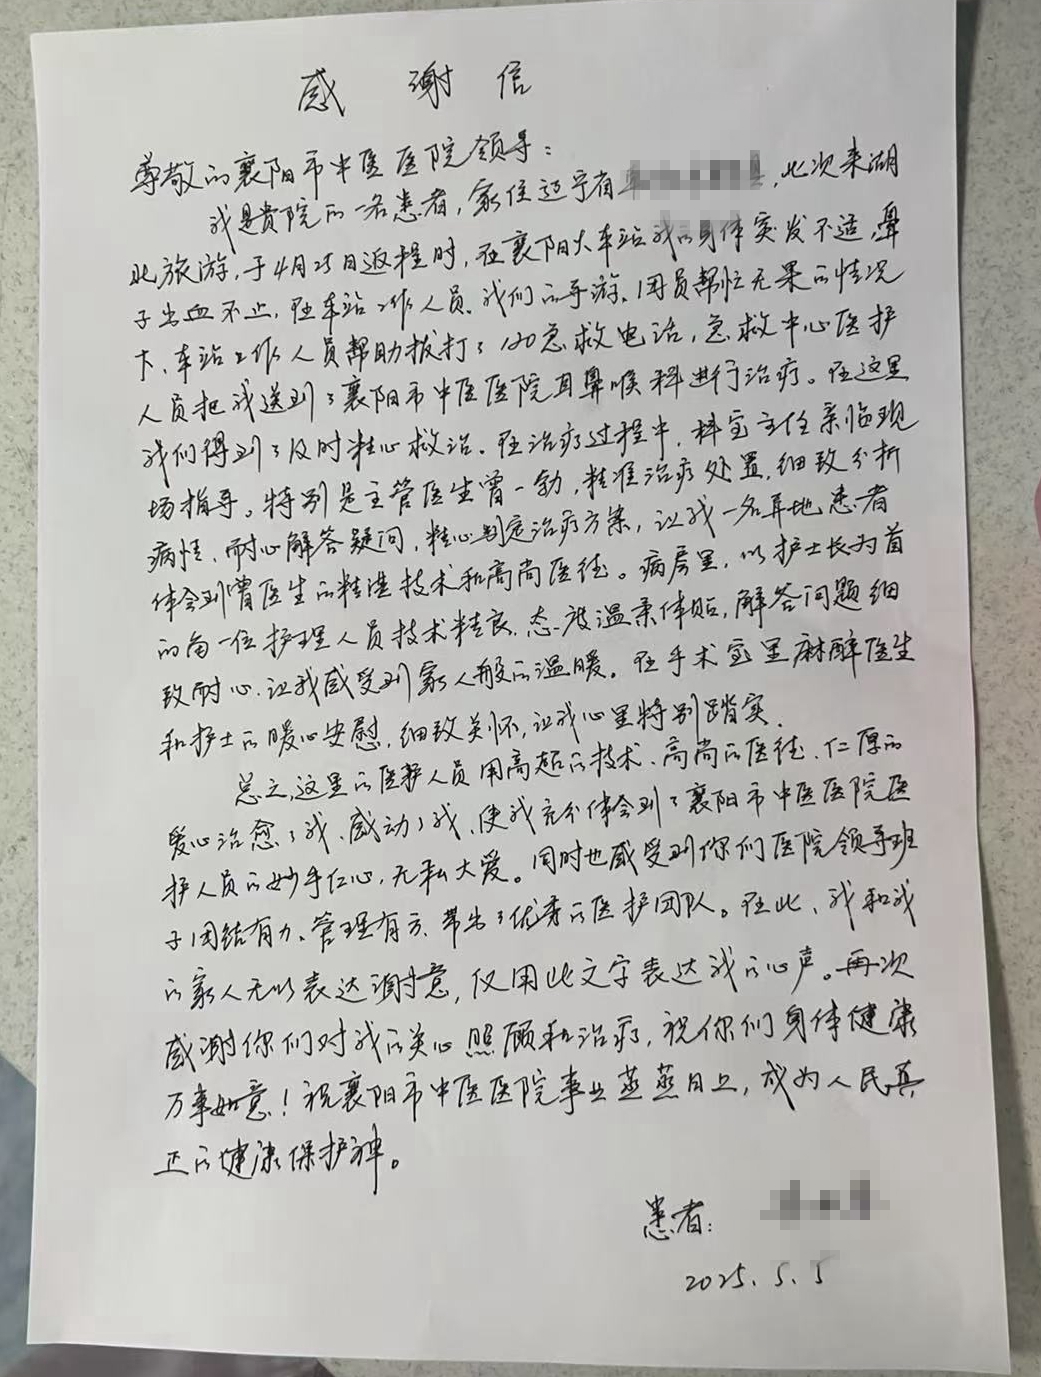 感谢信
尊敬的襄阳市中医医院领导：
我是贵院的一名患者，家住辽宁省，此次来湖
北旅游，于4月25日返程时，在襄阳火车站我的身体突发不适，鼻
子出血不止，在车站工作人员、我们的导游、团员帮忙无果的情况
下，车站工作人员帮助拔打了120急救电话，急救中心医护
人员把我送到了襄阳市中医医院耳鼻喉科进行治疗。在这里
我们得到了及时精心救治。在治疗过程中，科室主任亲临现
场指导。特别是主管医生曾一勃，精准治疗处置，细致分析
病情，耐心解答疑问，精心制定治疗方案，让我一名异地患者
体会到曾医生的精湛技术和高尚医德。病房里，以护士长为首
的每一位护理人员技术精良、态度温柔体贴，解答问题细
致耐心，让我感受到家人般的温暖。在手术室里麻醉医生
和护士的暖心安慰，细致关怀，让我心里特别踏实.
总之，这里的医护人员用高超的技术、高尚的医德、仁厚的
爱心治愈了我、感动了我、使我充分体会到了襄阳市中医医院医
护人员的妙手仁心，无私大爱。同时也感受到你们医院领导班
子团结有力、管理有方、带出了优秀的医护团队。在此、我和我
的家人无以表达谢意，仅用此文字表达我的心声。再次
感谢你们对我的关心照顾和治疗，祝你们身体健康
万事如意！祝襄阳市中医医院事业蒸蒸日上，成为人民真
正的健康保护神。
患者：
2025.5.5